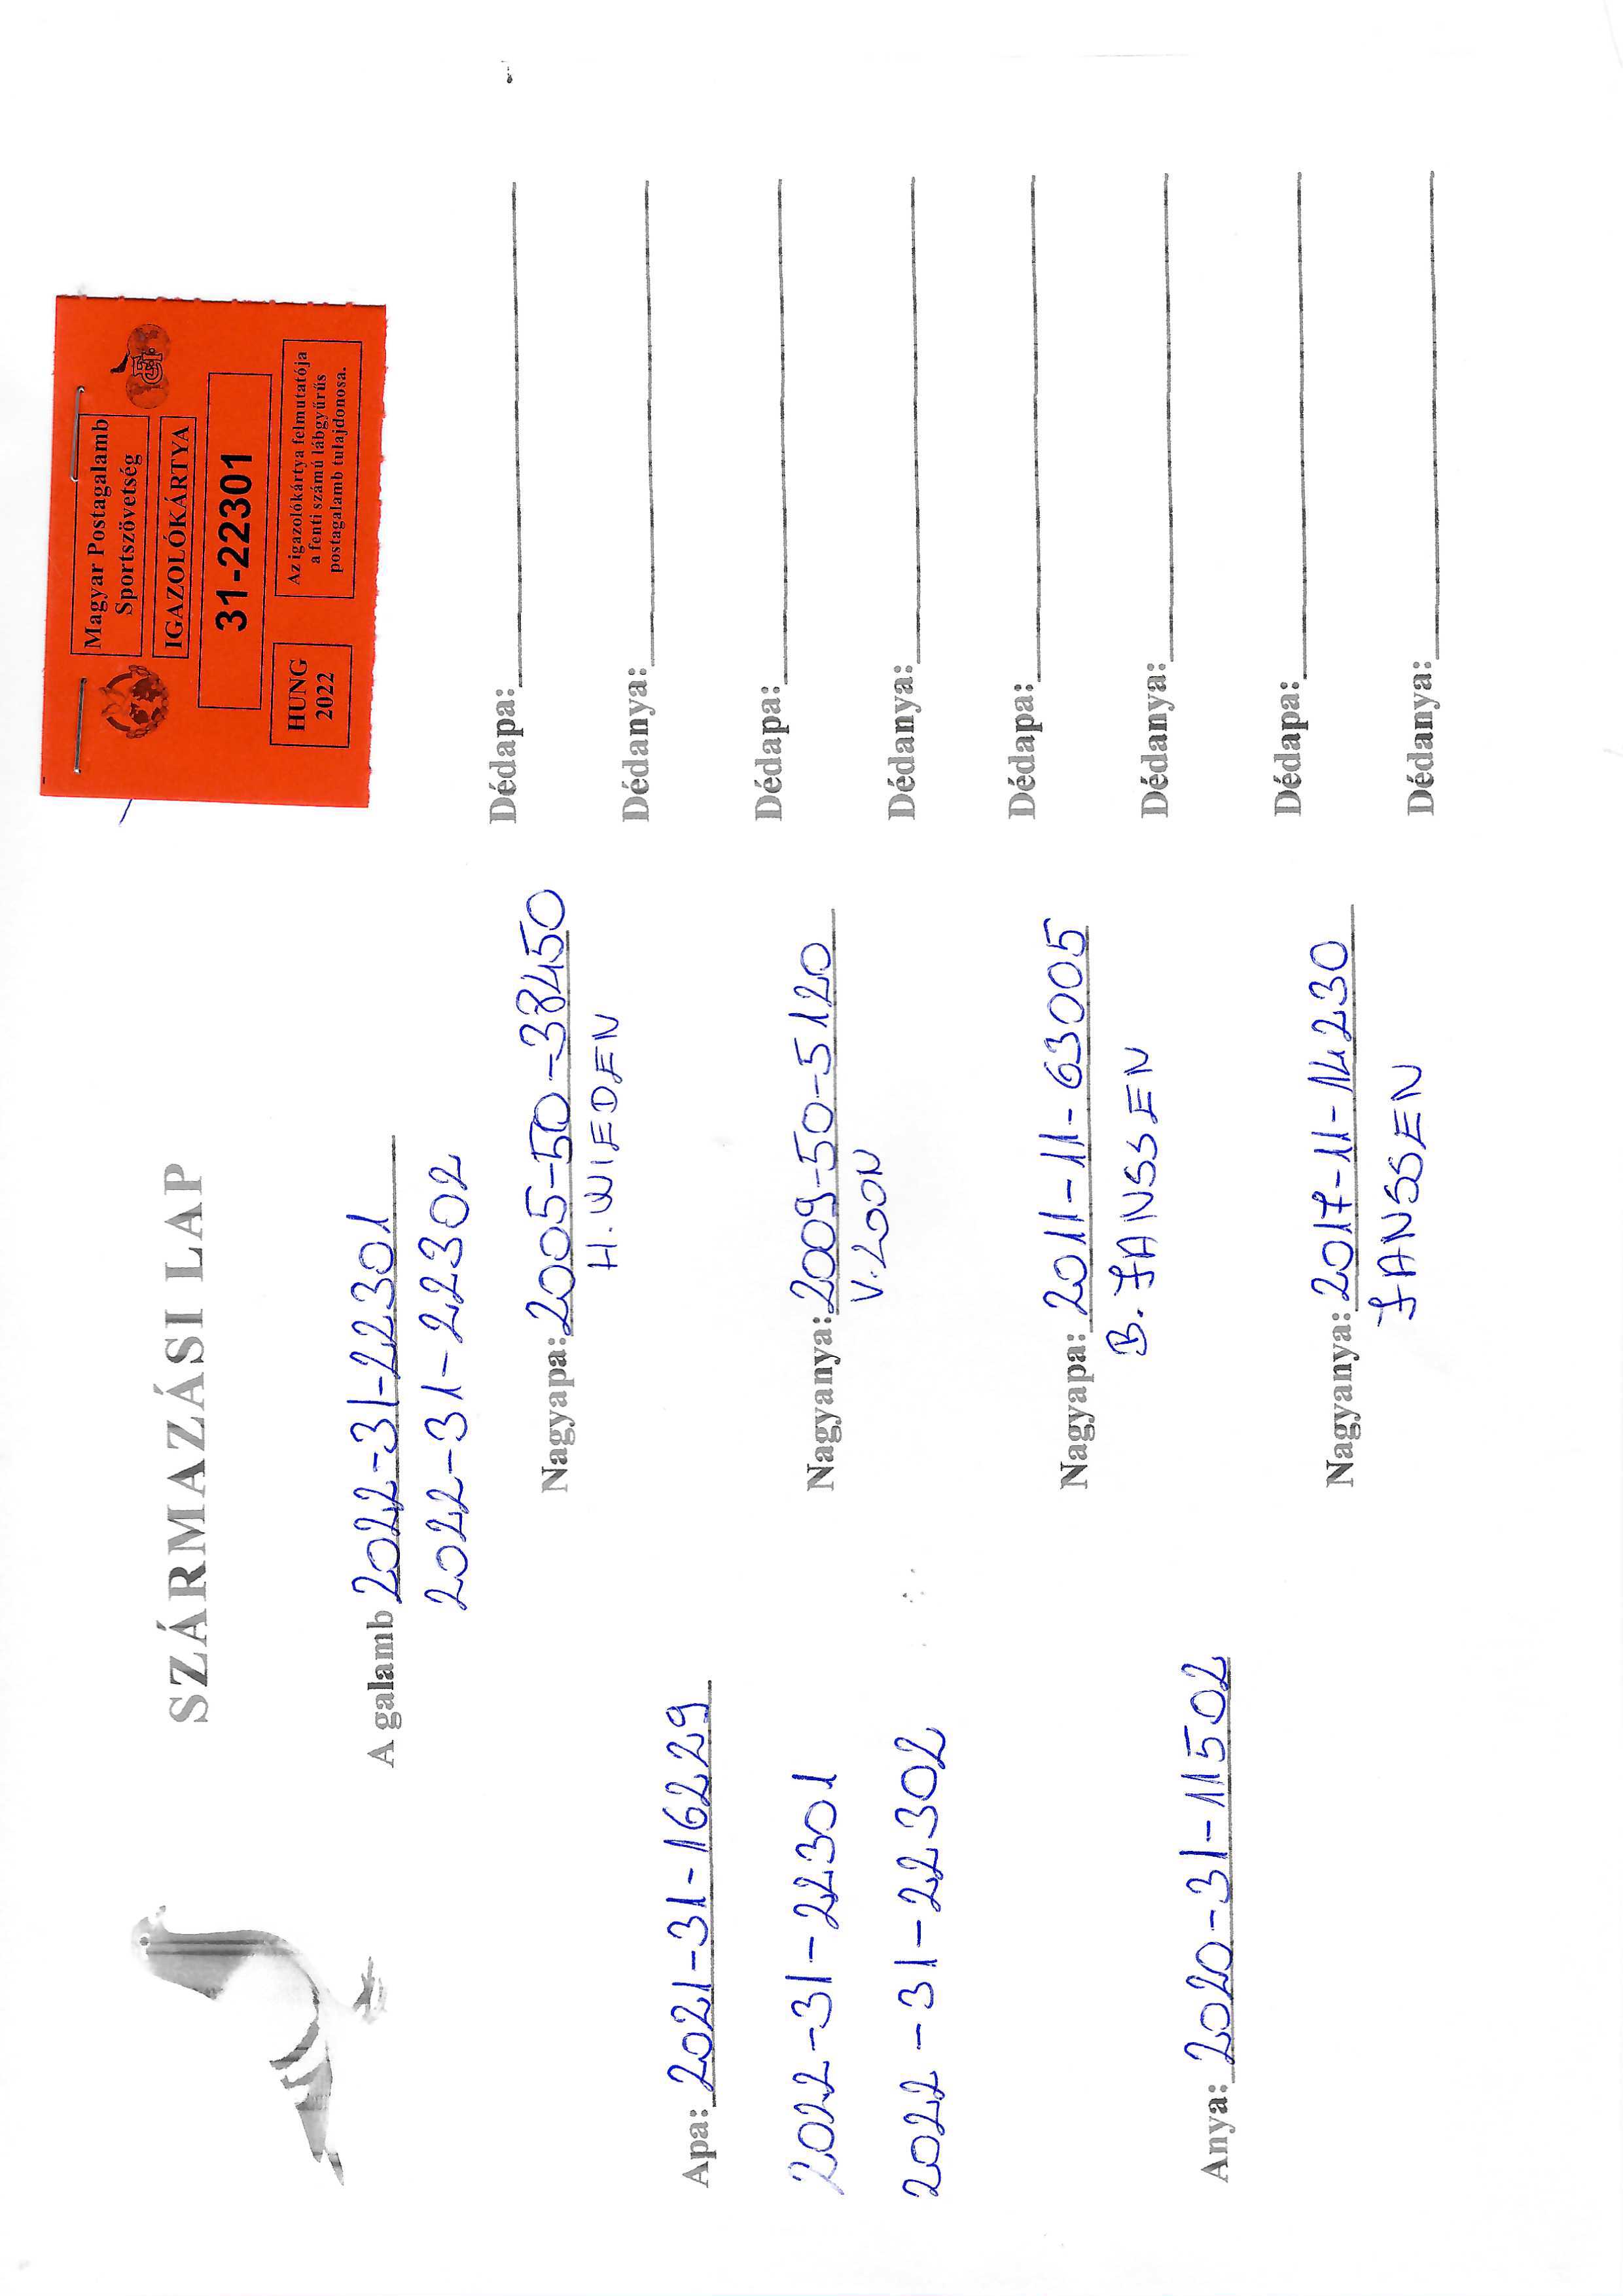 SZÁRMAZÁSI LAP
Magyar Postagalamb
Sportszövetség
IGAZOLÓKÁRTYA
31-22301
HUNG
2022
Az igazolókártya felmutatója
a fenti számú lábgyűrűs
postagalamb tulajdonosa.
A galamb 2022-31-22301
2022-31-22302
Apa: 2021-31-16229
2022-31-22301
2022-31-22302
Anya: 2020-31-11502
Nagyapa: 2005-50-38450
H. WIEDEN
Nagyanya: 2009-50-5120
V. LOON
Nagyapa: 2011-11-63005
B. JANSSEN
Nagyanya: 2017-11-14230
JANSSEN
Dédapa:
Dédanya:
Dédapa:
Dédanya:
Dédapa:
Dédanya:
Dédapa:
Dédanya: